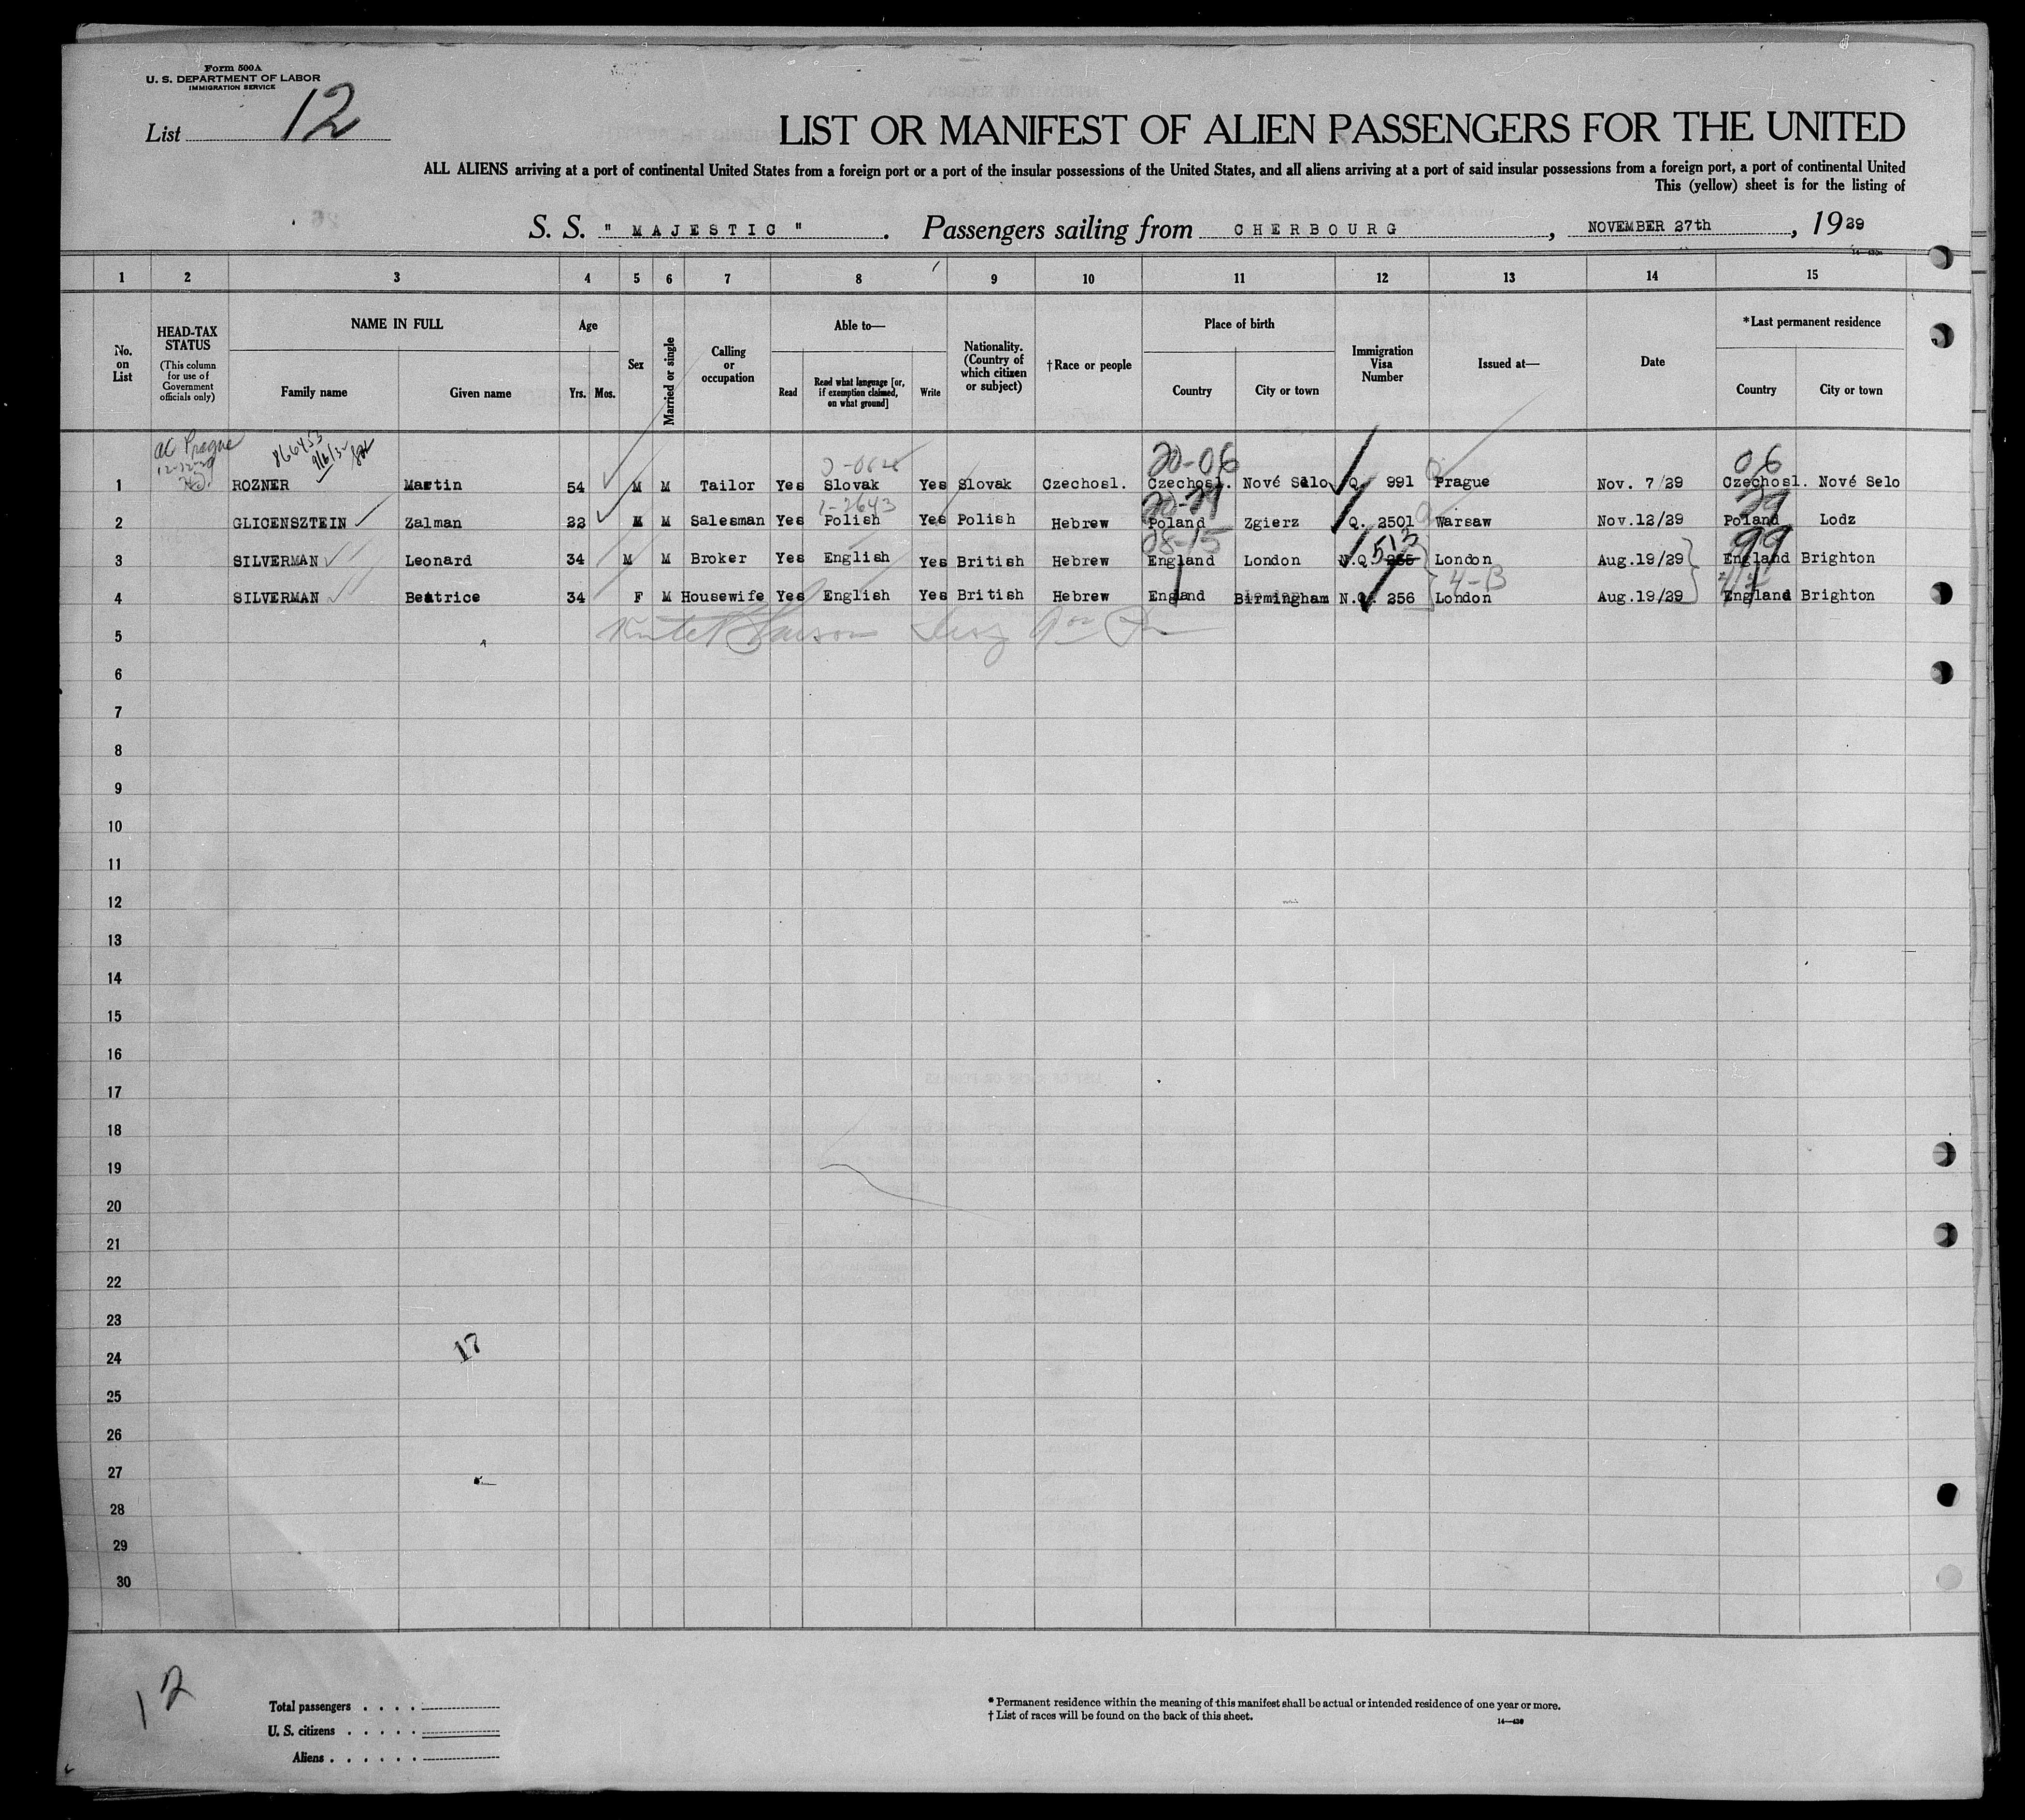 Form 500A
U. S. DEPARTMENT OF LABOR
IMMIGRATION SERVICE
List 12
LIST OR MANIFEST OF ALIEN PASSENGERS FOR THE UNITED
ALL ALIENS arriving at a port of continental United States from a foreign port or a port of the insular possessions of the United States, and all aliens arriving at a port of said insular possessions from a foreign port, a port of continental United
This (yellow) sheet is for the listing of
S. S. " MAJESTIC " . Passengers sailing from CHERBOURG , NOVEMBER 27th , 1929
1 2 3 4 5 6 7 8 9 10 11 12 13 14 15
No. on List
HEAD-TAX STATUS (This column for use of Government officials only)
NAME IN FULL Family name Given name
Age Yrs. Mos.
Sex
Married or single
Calling or occupation
Able to— Read Read what language [or, if exemption claimed, on what ground] Write
Nationality. (Country of which citizen or subject)
†Race or people
Place of birth Country City or town
Immigration Visa Number
Issued at—
Date
*Last permanent residence Country City or town
Prague 866453 20-06 06
1 ROZNER Martin 54 M M Tailor Yes Slovak Yes Slovak Czechosl. Czechosl. Nové Selo Q. 991 Prague Nov. 7/29 Czechosl. Nové Selo
2-2643 20-29 29
2 GLICENSZTEIN Zalman 22 M M Salesman Yes Polish Yes Polish Hebrew Poland Zgierz Q. 2501 Warsaw Nov.12/29 Poland Lodz
08-15 513 99
3 SILVERMAN Leonard 34 M M Broker Yes English Yes British Hebrew England London N.Q. 255 London Aug.19/29 England Brighton
4-B
4 SILVERMAN Beatrice 34 F M Housewife Yes English Yes British Hebrew England Birmingham N.Q. 256 London Aug.19/29 England Brighton
5
6
7
8
9
10
11
12
13
14
15
16
17
18
19
20
21
22
23
24
17
25
26
27
28
29
30
12
Total passengers . . . .
U. S. citizens . . . . .
Aliens . . . . . .
* Permanent residence within the meaning of this manifest shall be actual or intended residence of one year or more.
† List of races will be found on the back of this sheet.
14—430